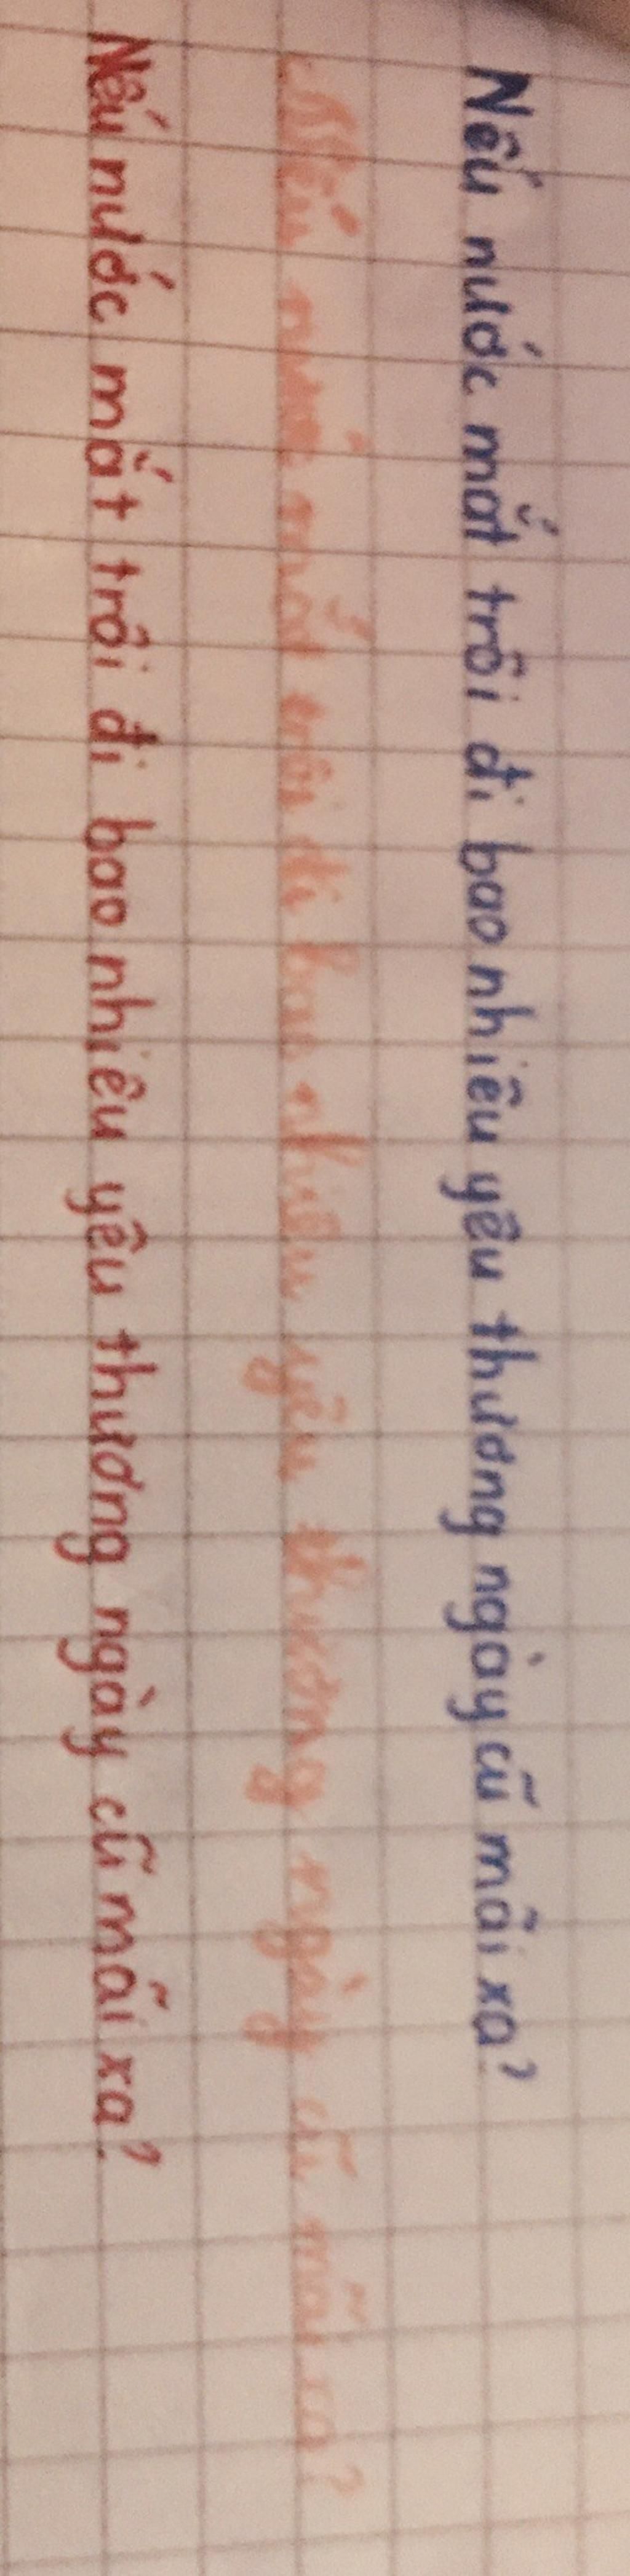 Nếu nước mắt trôi đi bao nhiêu yêu thương ngày cũ mãi xa?
Nếu nước mắt trôi đi bao nhiêu yêu thương ngày cũ mãi xa?
Nếu nước mắt trôi đi bao nhiêu yêu thương ngày cũ mãi xa?